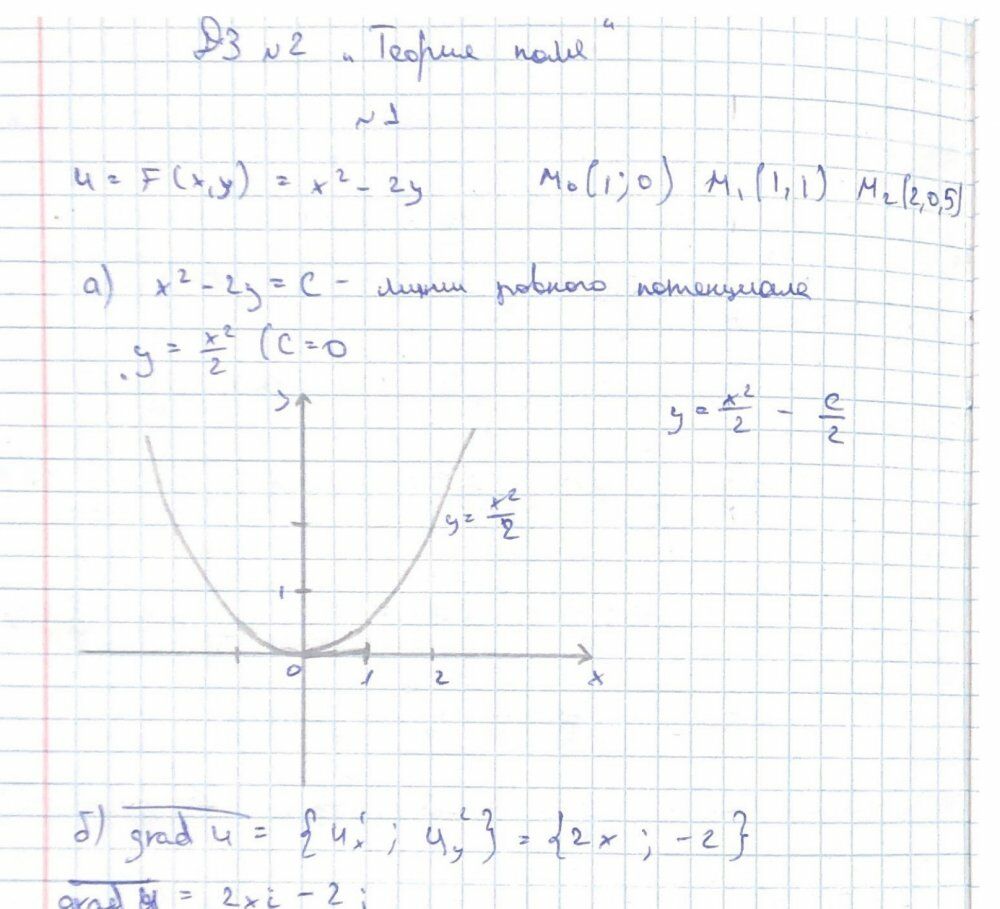 ДЗ №2 „Теория поля“
№1
u = F(x,y) = x² - 2y M₀(1;0) M₁(1,1) M₂(2,0,5)
а) x² - 2y = C - линии ровного потенциала
y = x²/2 (C = 0
y
y = x²/2 - C/2
y = x²/2
1
0 1 2 x
б) grad u = {u'ₓ; u'ᵧ} = {2x; -2}
grad u = 2xi - 2j